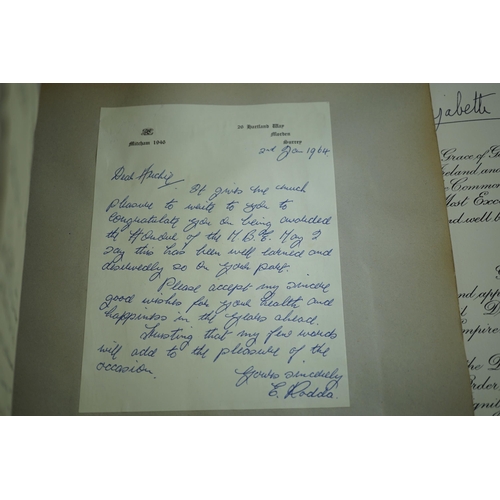 30 Hartland Way
Mitcham 1940
Morden
Surrey
2nd Jan 1964
Dear
It gives me much
pleasure to write to you to
congratulate you on being awarded
the Honour of the M.B.E. May I
say this has been well earned and
deservedly so on your part.
Please accept my sincere
good wishes for your health and
happiness in the years ahead.
Trusting that my few words
will add to the pleasure of the
occasion.
Yours sincerely
E. Rodda.
Grace of G
Ireland and
Comm
Most Exce
nd well b
nd app
mpire
the D
Order